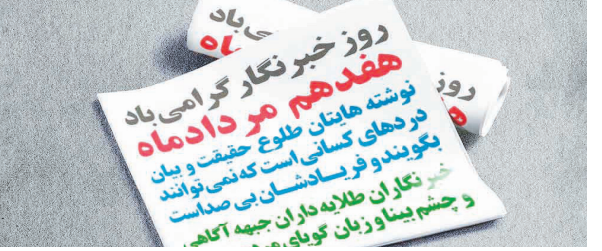 روز خبرنگار گرامی‌باد
هفدهم مردادماه
نوشته هایتان طلوع حقیقت و بیان
دردهای کسانی است که نمی‌توانند
بگویند و فریادشان بی صداست
خبرنگاران طلایه‌داران جبهه آگاهی
و چشم بینا و زبان گویای
می‌باد
ماه
روز